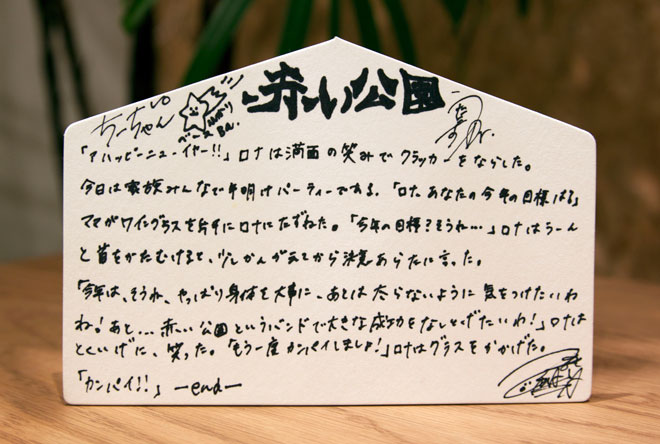 赤い公園
ちーちゃん
「アハッピーニューイヤー!!」ロナは満面の笑みでクラッカーをならした。
今日は家族みんなで年明けパーティーである。「ロナ、あなたの今年の目標は?」
ママがワイングラスを片手にロナにたずねた。「今年の目標?そうね…」ロナはうーん
と首をかたむけると、少しかんがえてから決意あらたに言った。
「今年は、そうね、やっぱり身体を大事に、あとは太らないように気をつけたいわ
ね!あと…赤い公園というバンドで大きな成功をなしとげたいわ!」ロナは
とくいげに、笑った。「もう一度カンパイしましょ!」ロナはグラスをかかげた。
「カンパイ!!」 —end—